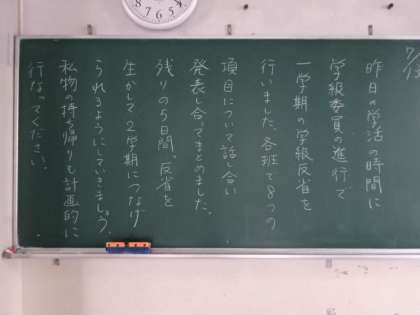 7/13
昨日の学活の時間に
学級委員の進行で
一学期の学級反省を
行いました。各班で8つの
項目について話し合い
発表し合ってまとめました。
残りの5日間、反省を
生かして2学期につなげ
られるようにしていきましょう。
私物の持ち帰りも計画的に
行なってください。